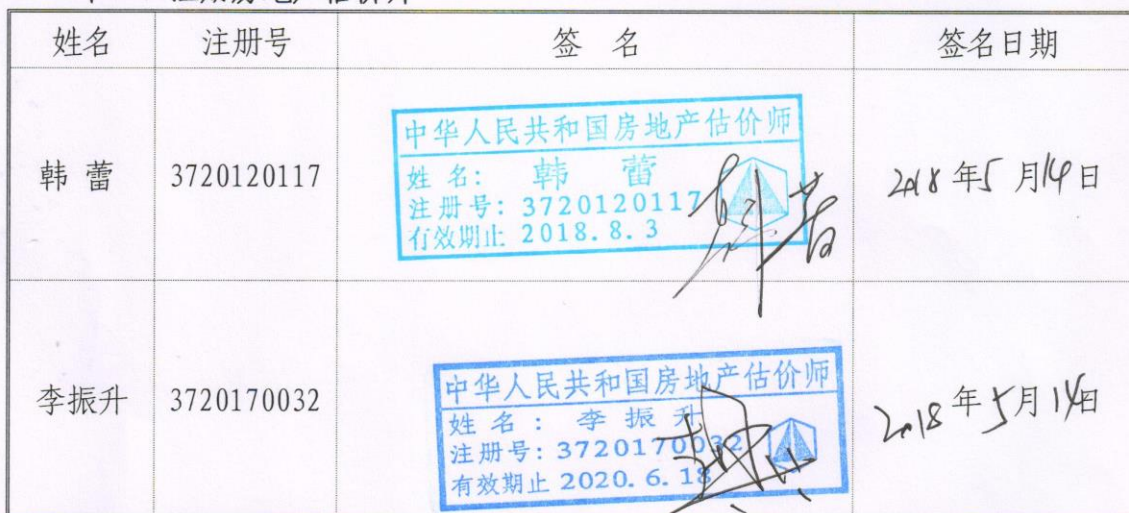 姓名 注册号 签 名 签名日期
韩 蕾 3720120117
中华人民共和国房地产估价师
姓 名: 韩 蕾
注册号: 3720120117
有效期止 2018. 8. 3
2018 年 5 月 14 日
李振升 3720170032
中华人民共和国房地产估价师
姓 名: 李 振 升
注册号: 3720170032
有效期止 2020. 6. 18
2018 年 5 月 14 日